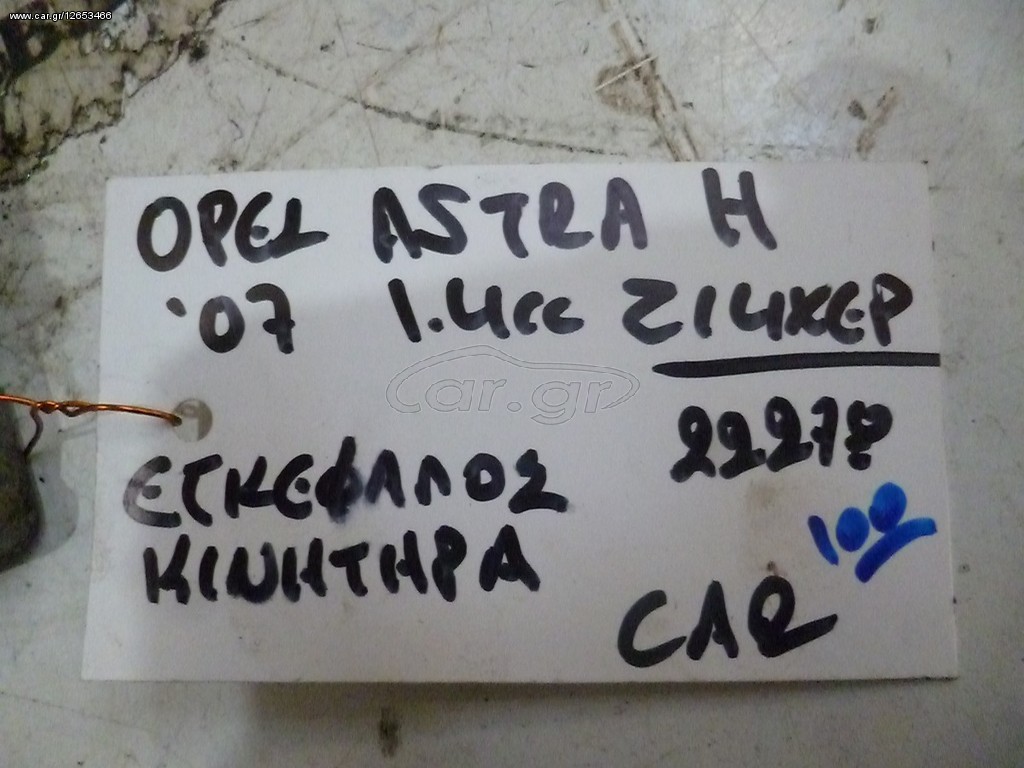 www.car.gr/12653466
OPEL ASTRA H
'07 1.4cc Z14XEP
car.gr
22278
ΕΓΚΕΦΑΛΟΣ
100
ΚΙΝΗΤΗΡΑ
CAR